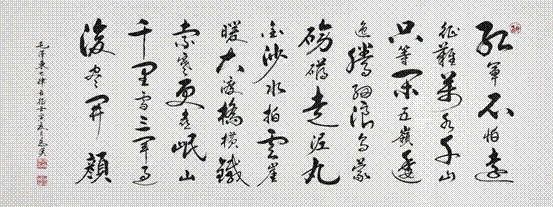 紅軍不怕遠
征難萬水千山
只等閒五嶺逶
迤騰細浪烏蒙
磅礴走泥丸
金沙水拍雲崖
暖大渡橋橫鐵
索寒更喜岷山
千里雪三軍過
後盡開顏
毛澤東七律長征